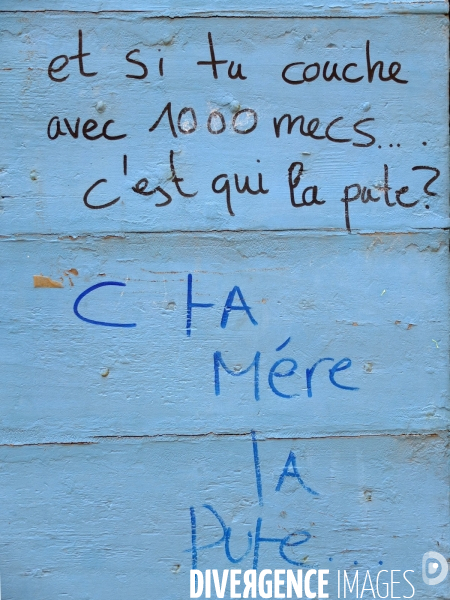 et si tu couche
avec 1000 mecs....
c'est qui la pute?
C tA
Mére
lA
Pute...
DIVERGENCE IMAGES